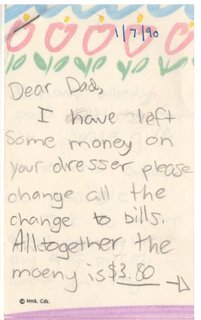 1/7/90
Dear Dad,
I have left
some money on
your dresser please
change all the
change to bills.
Alltogether the
moeny is $3.80